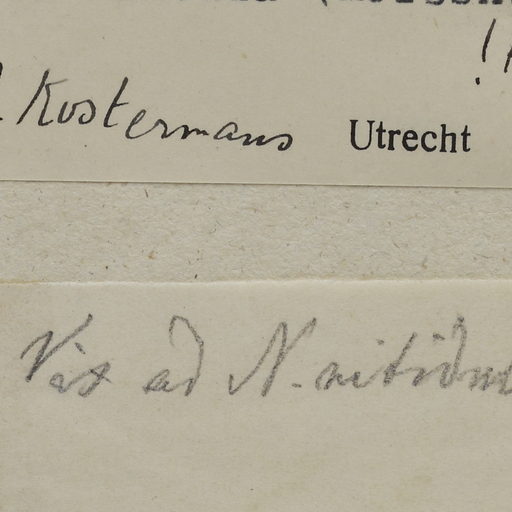 Kostermans Utrecht
Vix ad N. nitidum